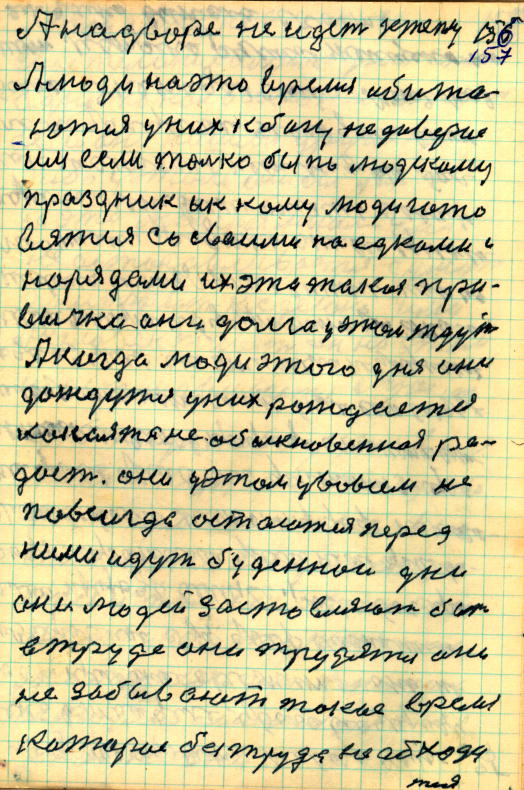 А на дворе не идет к теплу 156
157
А люди на это время обижа-
ются у них к богу недоверие
им если толко быть людскому
праздник ик кому люди гото
вятся со своими поедками и
нарядами их эта такая при-
вычка они долга у этом ждут
А когда люди этого дня они
дождутся у них рождается
какаята не обыкновенная ра-
дост. они у этом у вовсем не
повсигда остаются перед
ними идут буденнои дни
они людей заставляют быт
в труде они трудятся они
не забывают такое время
каторое без труда не обхода
тся